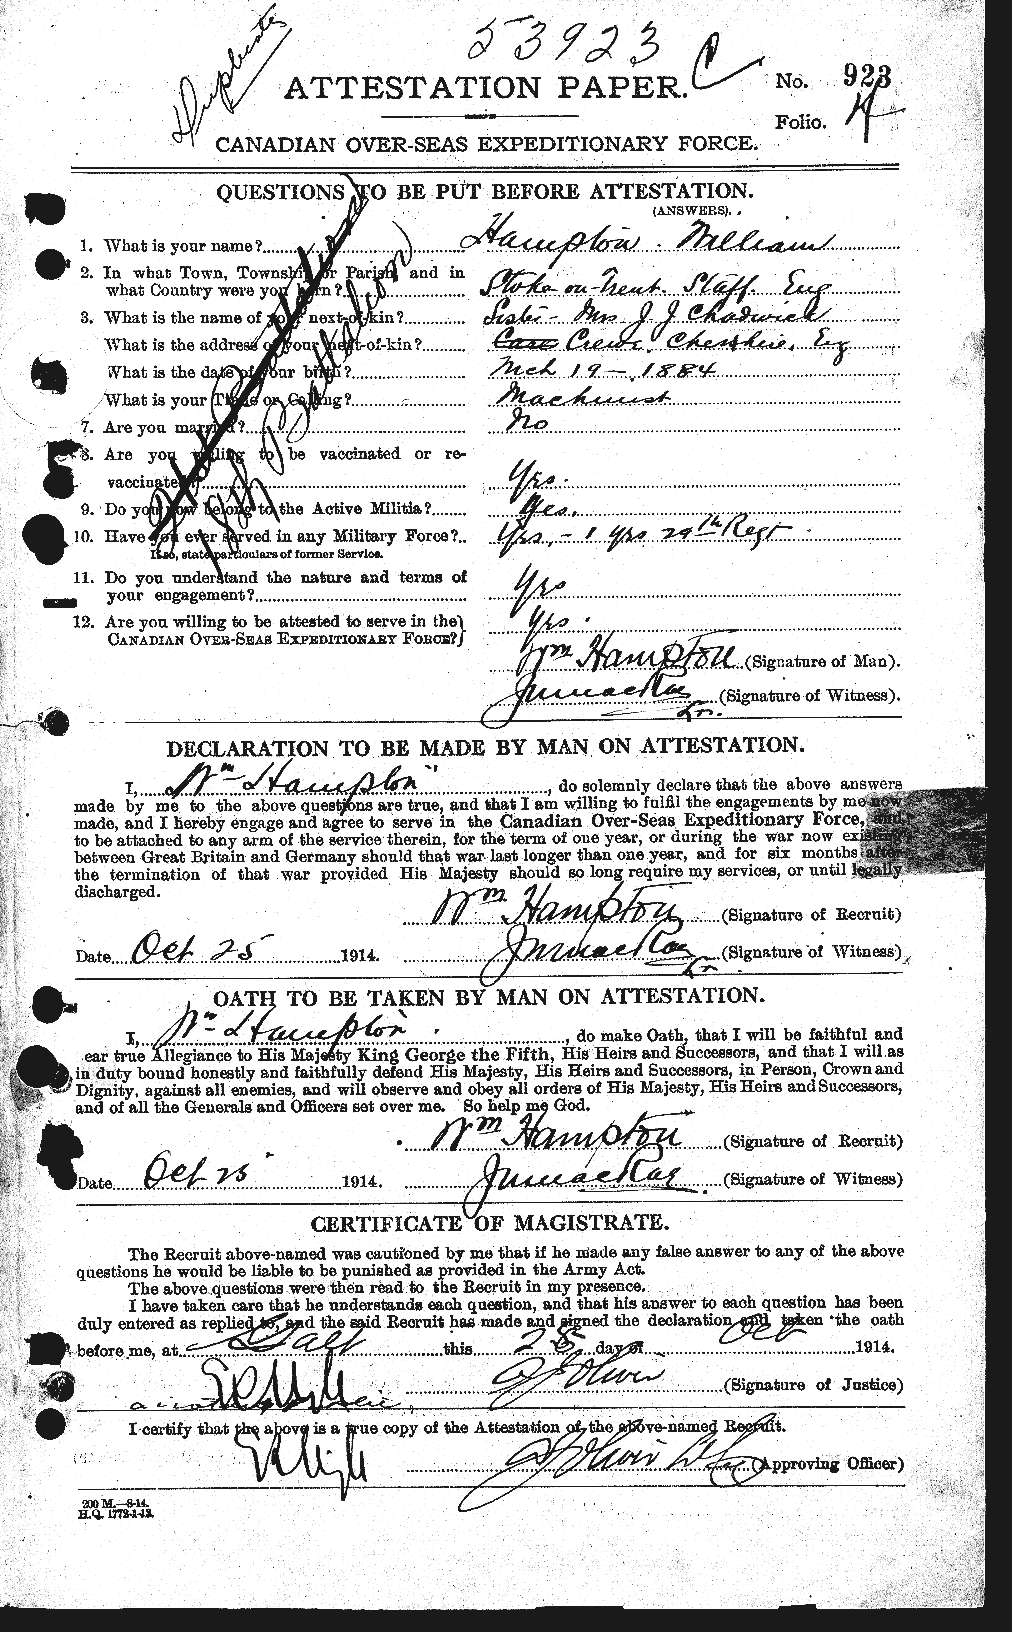 Duplicate
53923
C
ATTESTATION PAPER.
No. 923
Folio. 4
CANADIAN OVER-SEAS EXPEDITIONARY FORCE.
QUESTIONS TO BE PUT BEFORE ATTESTATION.
(ANSWERS).
18th Battalion
1. What is your name? Hampton. William
2. In what Town, Township or Parish, and in
what Country were you born? Stoke-on-Trent. Staff. Eng
3. What is the name of your next-of-kin? Sister - Mrs J J Chadwick
What is the address of your next-of-kin? Crewe, Cheshire, Eng
What is the date of your birth? Mch 19 - 1884
What is your Trade or Calling? Machinist
7. Are you married? No
8. Are you willing to be vaccinated or re-
vaccinated? Yes.
9. Do you now belong to the Active Militia? Yes.
10. Have you ever served in any Military Force? Yes, - 1 yrs 29th Regt
If so, state particulars of former Service.
11. Do you understand the nature and terms of
your engagement? Yes
12. Are you willing to be attested to serve in the
CANADIAN OVER-SEAS EXPEDITIONARY FORCE? Yes.
Wm Hampton (Signature of Man).
(Signature of Witness).
DECLARATION TO BE MADE BY MAN ON ATTESTATION.
I, Wm Hampton, do solemnly declare that the above answers
made by me to the above questions are true, and that I am willing to fulfil the engagements by me now
made, and I hereby engage and agree to serve in the Canadian Over-Seas Expeditionary Force, and
to be attached to any arm of the service therein, for the term of one year, or during the war now existing
between Great Britain and Germany should that war last longer than one year, and for six months after
the termination of that war provided His Majesty should so long require my services, or until legally
discharged.
Wm Hampton (Signature of Recruit)
Date Oct 25 1914. (Signature of Witness)
OATH TO BE TAKEN BY MAN ON ATTESTATION.
I, Wm Hampton, do make Oath, that I will be faithful and
ear true Allegiance to His Majesty King George the Fifth, His Heirs and Successors, and that I will as
in duty bound honestly and faithfully defend His Majesty, His Heirs and Successors, in Person, Crown and
Dignity, against all enemies, and will observe and obey all orders of His Majesty, His Heirs and Successors,
and of all the Generals and Officers set over me. So help me God.
Wm Hampton (Signature of Recruit)
Date Oct 25 1914. (Signature of Witness)
CERTIFICATE OF MAGISTRATE.
The Recruit above-named was cautioned by me that if he made any false answer to any of the above
questions he would be liable to be punished as provided in the Army Act.
The above questions were then read to the Recruit in my presence.
I have taken care that he understands each question, and that his answer to each question has been
duly entered as replied to, and the said Recruit has made and signed the declaration and taken the oath
before me, at Galt this 25 day of Oct 1914.
(Signature of Justice)
I certify that the above is a true copy of the Attestation of the above-named Recruit.
(Approving Officer)
200 M.-8-14.
H.Q. 1772-1-13.